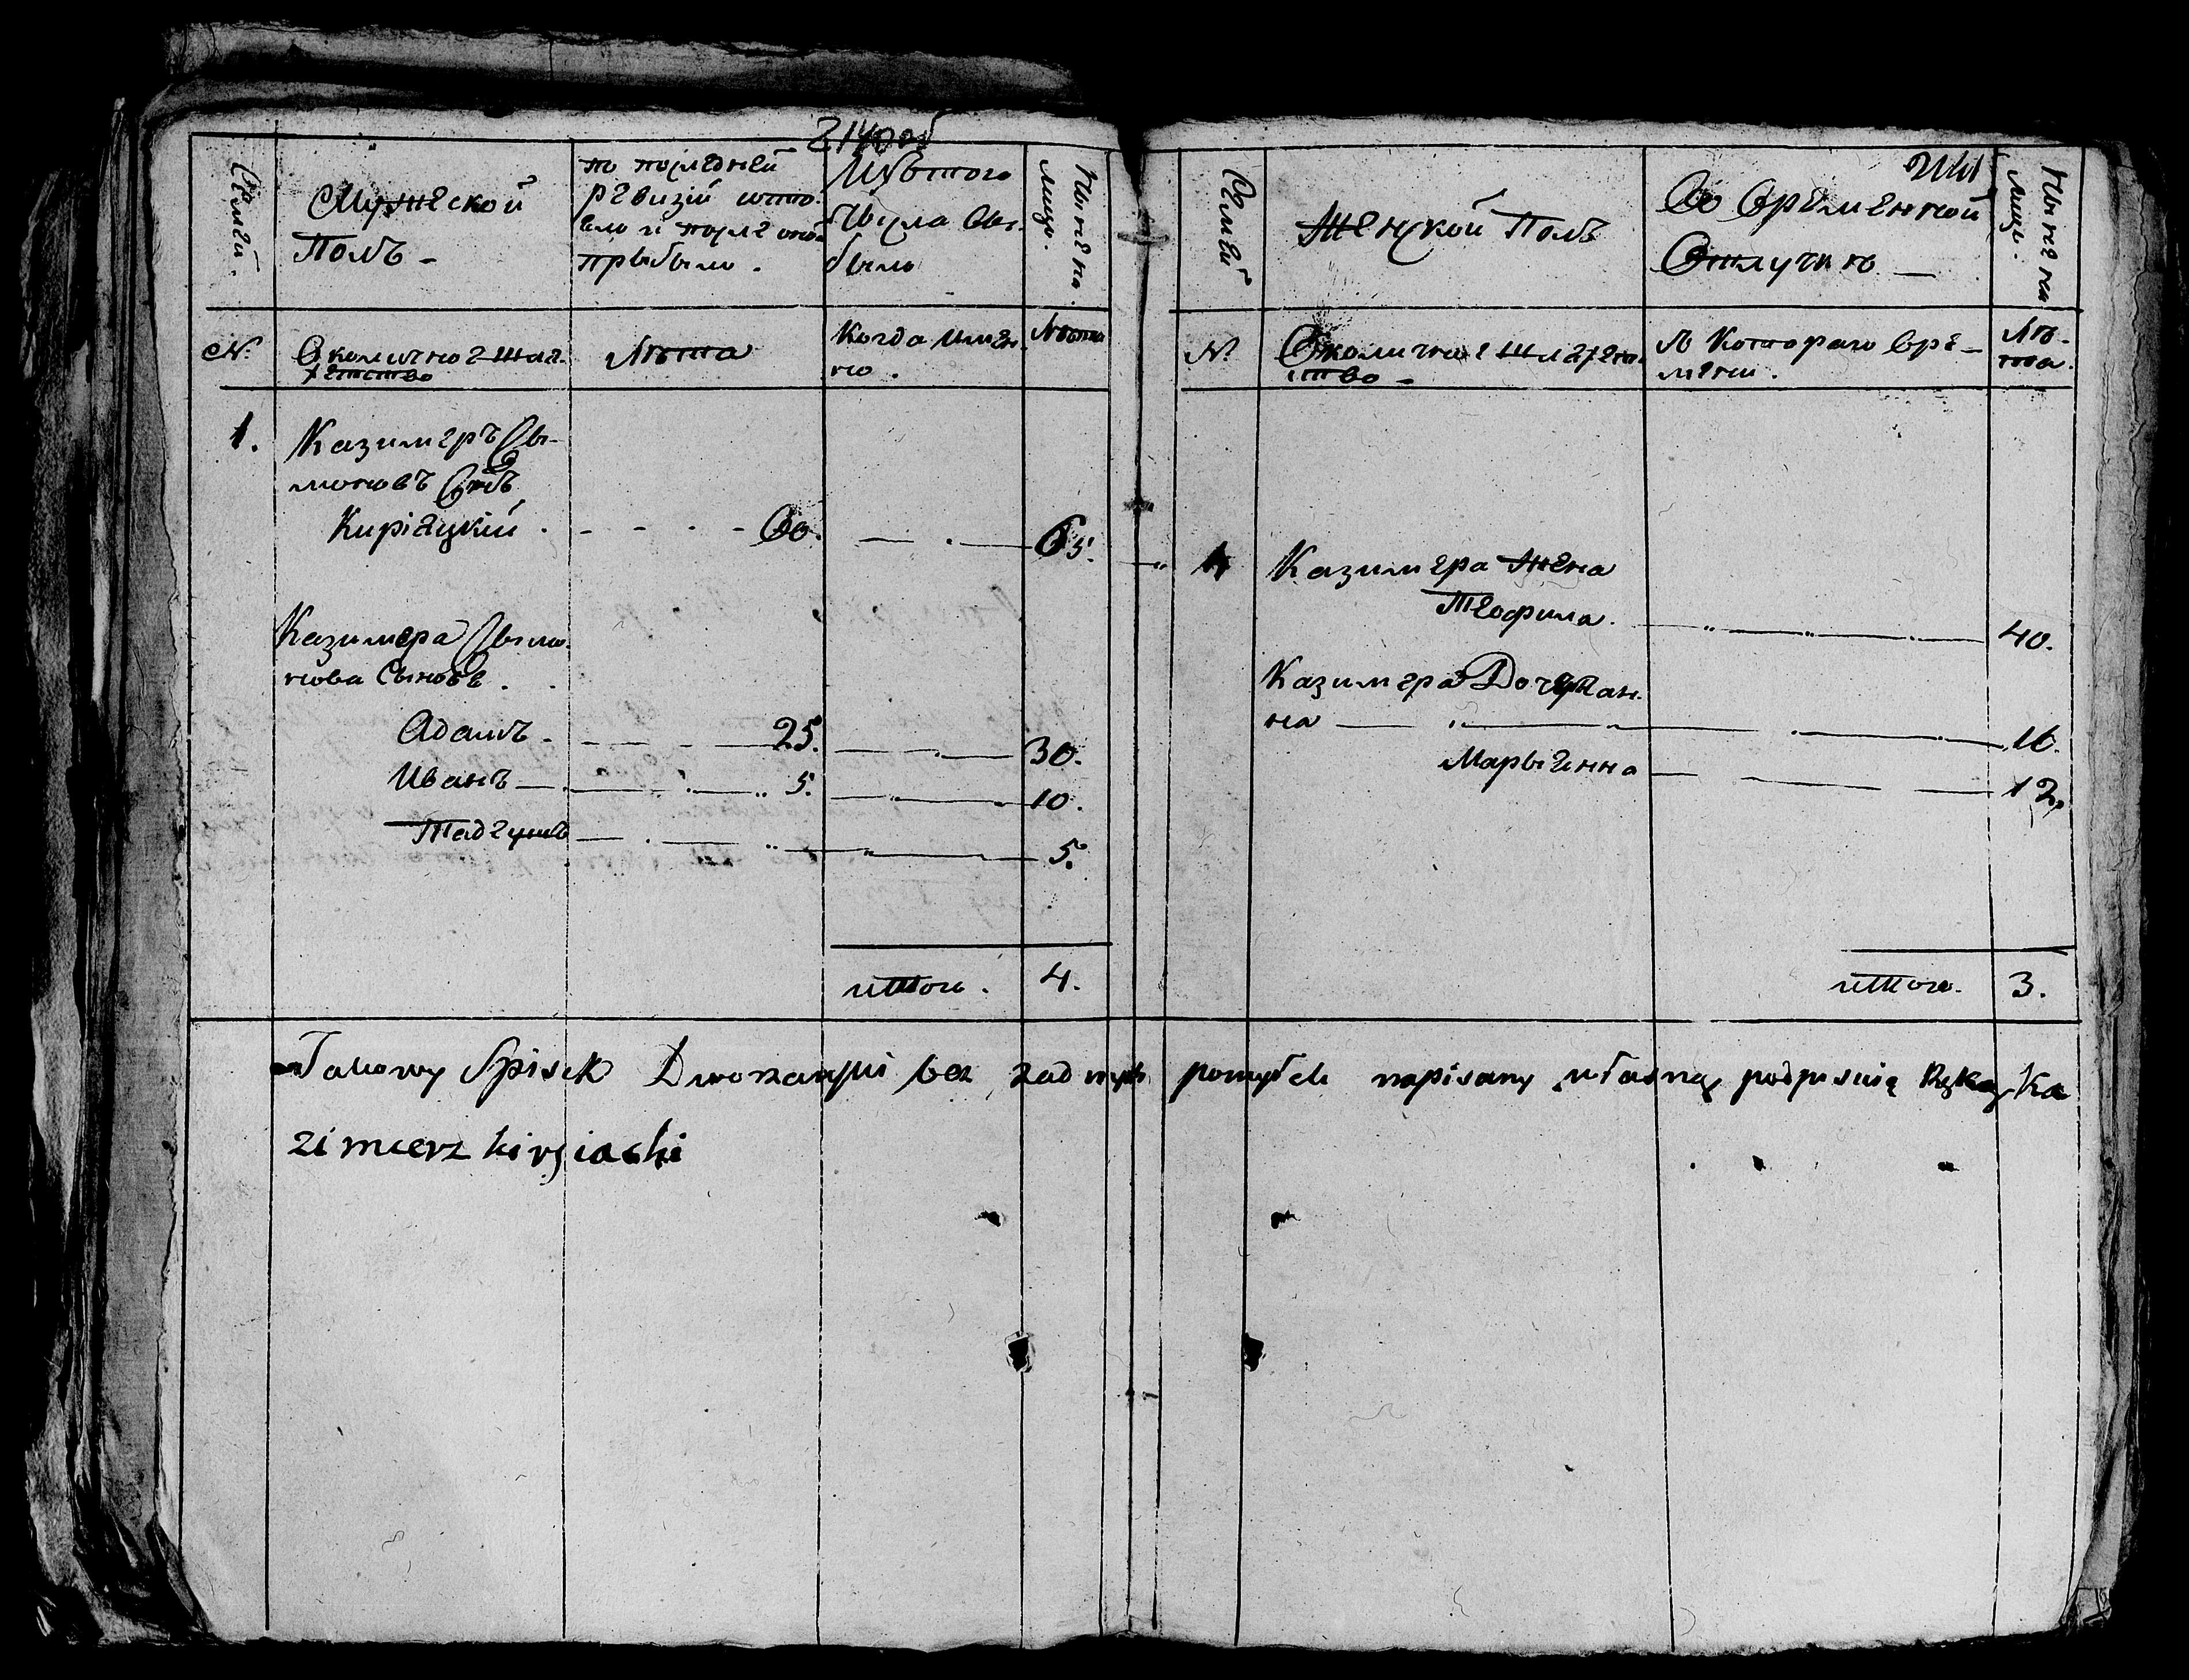 214 об
Семей.
Мужеской
Полъ -
по последней
ревизіи состо-
яло и после оной
прибыло.
Изътого
Числа вы-
было
Ныне на
лицо.
№.
Околичное Шля-
хетство
Лета
Когда имян-
но.
Лета
1.
Казимеръ Сы-
моновъ Сынъ
Киріяцкій . - - - - 60. 65.
Казимера Сымо-
нова Сыновя.
Адамъ - 25. 30.
Иванъ 5. 10.
Тадеушъ 5.
итого. 4.
Семей
Женской Полъ
Во временной
Отлучке
Ныне на
лицо.
№.
Околичное Шляхет-
ство -
с Котораго вре-
мени.
Ле-
та.
1
Казимера Жена
Теофила. 40.
Казимера Дочери Ан-
на 16.
Марыянна 12.
итого. 3.
Takowy Spisek Dworzanski bez zadnych pomyłek napisany własną podpisuię Ręką Ka
zimierz kirjiacki